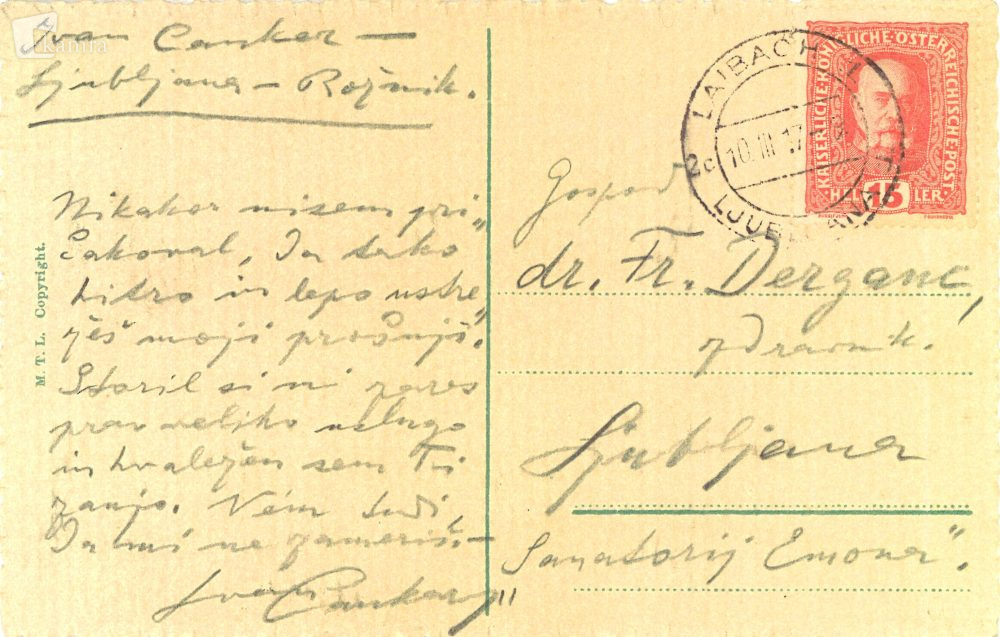 Kamra
Ivan Cankar —
Ljubljana – Rožnik.
Nikakor nisem pri-
čakoval, da tako
hitro in lepo ustre-
žeš moji prošnji.
Storil si mi zares
prav veliko uslugo
in hvaležen sem Ti
zanjo. Vem tudi,
da mi ne zameriš. –
Ivan Cankar
M. T. L. Copyright.
KAISERLICHE KÖNIGLICHE ÖSTERREICHISCHE POST
15
HELLER
LAIBACH 1
10.III.17
2c
LJUBLJANA
Gospod
dr. Fr. Derganc,
zdravnik.
Ljubljana
Sanatorij „Emona“.